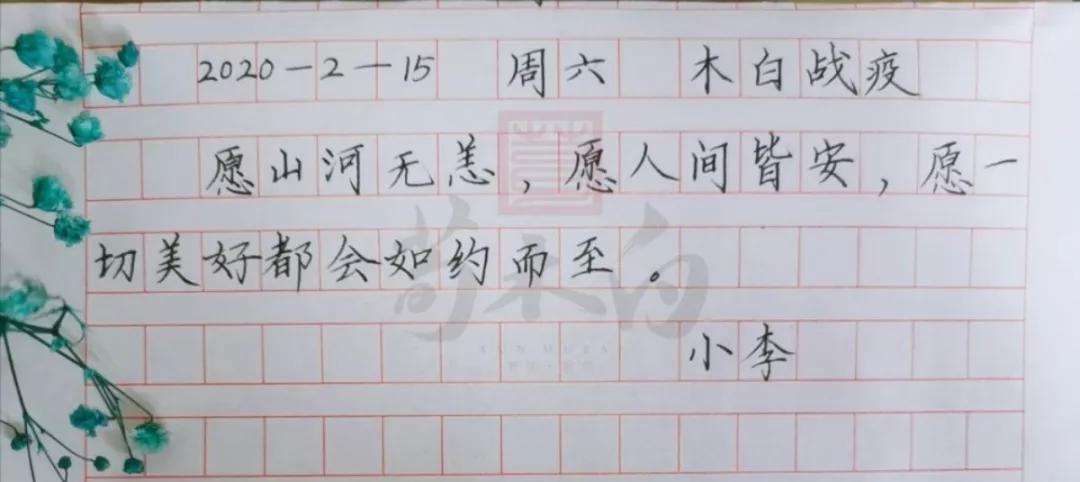 2020-2-15 周六 木白战疫
愿山河无恙，愿人间皆安，愿一
切美好都会如约而至。
小李
荀木白